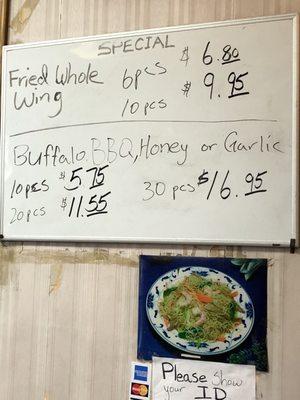 SPECIAL
Fried Whole Wing
6 pcs $6.80
10 pcs $9.95
Buffalo, BBQ, Honey or Garlic
10 pcs $5.75
20 pcs $11.55
30 pcs $16.95
Please show
your ID